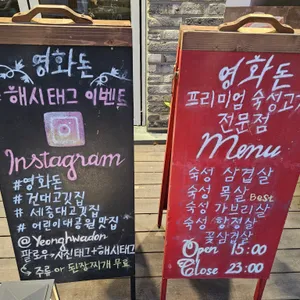 영화돈
해시태그 이벤트
Instagram
#영화돈
#건대고깃집
#세종대고깃집
#어린이대공원맛집
@Yeonghwadon
팔로우→사진태그+해시태그
→주류 or 된장찌개 무료
영화돈
프리미엄 숙성고기
전문점
Menu
숙성 삼겹살
숙성 목살 Best
숙성 가브리살
숙성 항정살
꽃삼겹살
Open 15:00
Close 23:00